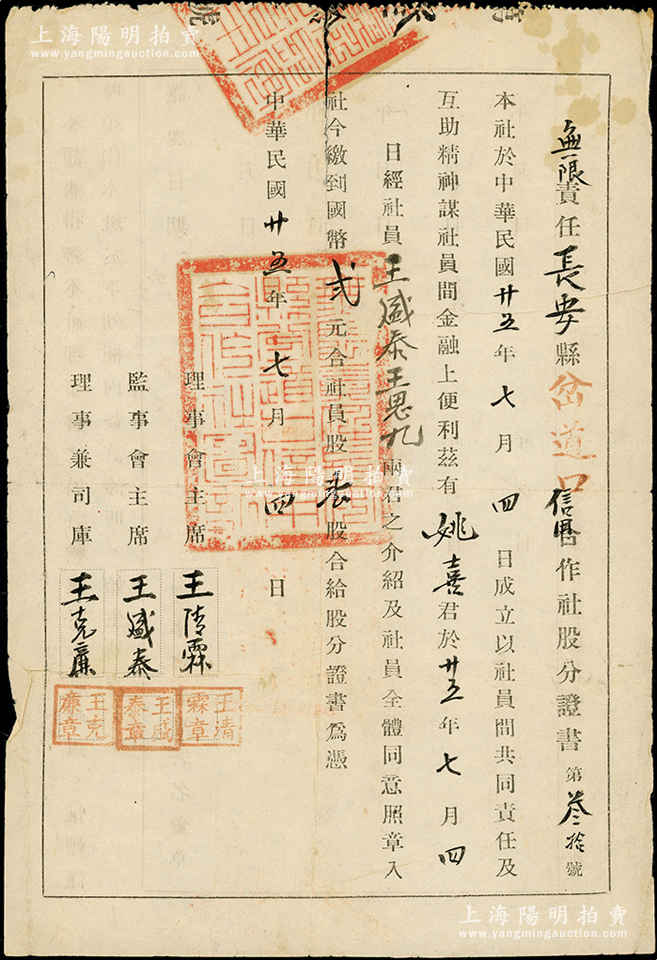 無限責任長安縣岔道口信用合作社股分證書 第叁拾號
本社於中華民國廿五年七月四日成立以社員間共同責任及
互助精神謀社員間金融上便利茲有姚喜君於廿五年七月四
日經社員王盛泰王思九兩君之介紹及社員全體同意照章入
社今繳到國幣貳元合社員股壹股合給股分證書為憑
中華民國廿五年七月四日
理事會主席 王清霖
王清霖章
監事會主席 王盛泰
王盛泰章
理事兼司庫 王克廉
王克廉章
上海陽明拍賣
www.yangmingauction.com
上海陽明拍賣
www.yangmingauction.com
上海陽明拍賣
www.yangmingauction.com